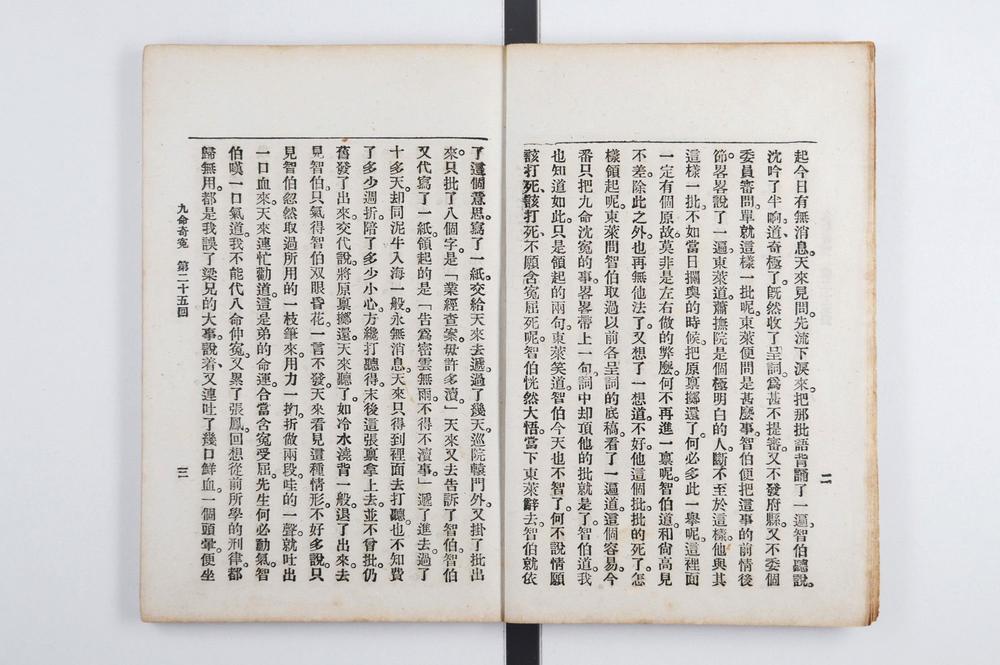 起今日有無消息。天來見問先流下淚來把那批語背誦了一遍智伯聽說。
沈吟了半晌道奇極了旣然收了呈詞爲甚不提審又不發府縣又不委個
委員審問單就這樣一批呢東萊便問是甚麽事智伯便把這事的前情後
節畧畧說了一遍東萊道蕭撫院是個極明白的人斷不至於這樣他與其
這樣一批不如當日攔輿的時候把原稟擲還了何必多此一舉呢這裡面
一定有個原故莫非是左右做的弊麽何不再進一稟呢智伯道和尙高見
不差除此之外也再無他法了又想了一想道不好他這個批批的死了怎
樣領起呢東萊問智伯取過以前各呈詞的底稿看了一遍道這個容易今
番只把九命沈寃的事畧畧帶上一句詞中却項他的批就是了智伯道我
也知道如此只是領起的兩句東萊笑道智伯今天也不智了何不說情願
該打死該打死不願含寃屈死呢智伯恍然大悟當下東萊辭去智伯就依
二
了這個意思寫了一紙交給天來去遞過了幾天巡院轅門外又掛了批出
來。只批了八個字是「業經查案毋許多瀆」天來又去告訴了智伯智伯
又代寫了一紙領起的是「告爲密雲無雨不得不瀆事」遞了進去過了
十多天却同泥牛入海一般永無消息天來只得到裡面去打聽也不知費
了多少週折陪了多少小心方纔打聽得末後這張稟拿上去並不曾批仍
舊發了出來交代說將原稟擲還天來聽了如冷水澆背一般退了出來去
見智伯只氣得智伯双眼昏花一言不發天來看見這種情形不好多說只
見智伯忽然取過所用的一枝筆來用力一拘折做兩段哇的一聲就吐出
一口血來天來連忙勸道這是弟的命運合當含寃受屈先生何必動氣智
伯嘆一口氣道我不能代八命伸寃又累了張鳳回想從前所學的刑律都
歸無用都是我誤了梁兄的大事說着又連吐了幾口鮮血一個頭暈便坐
九命奇寃 第二十五回 三